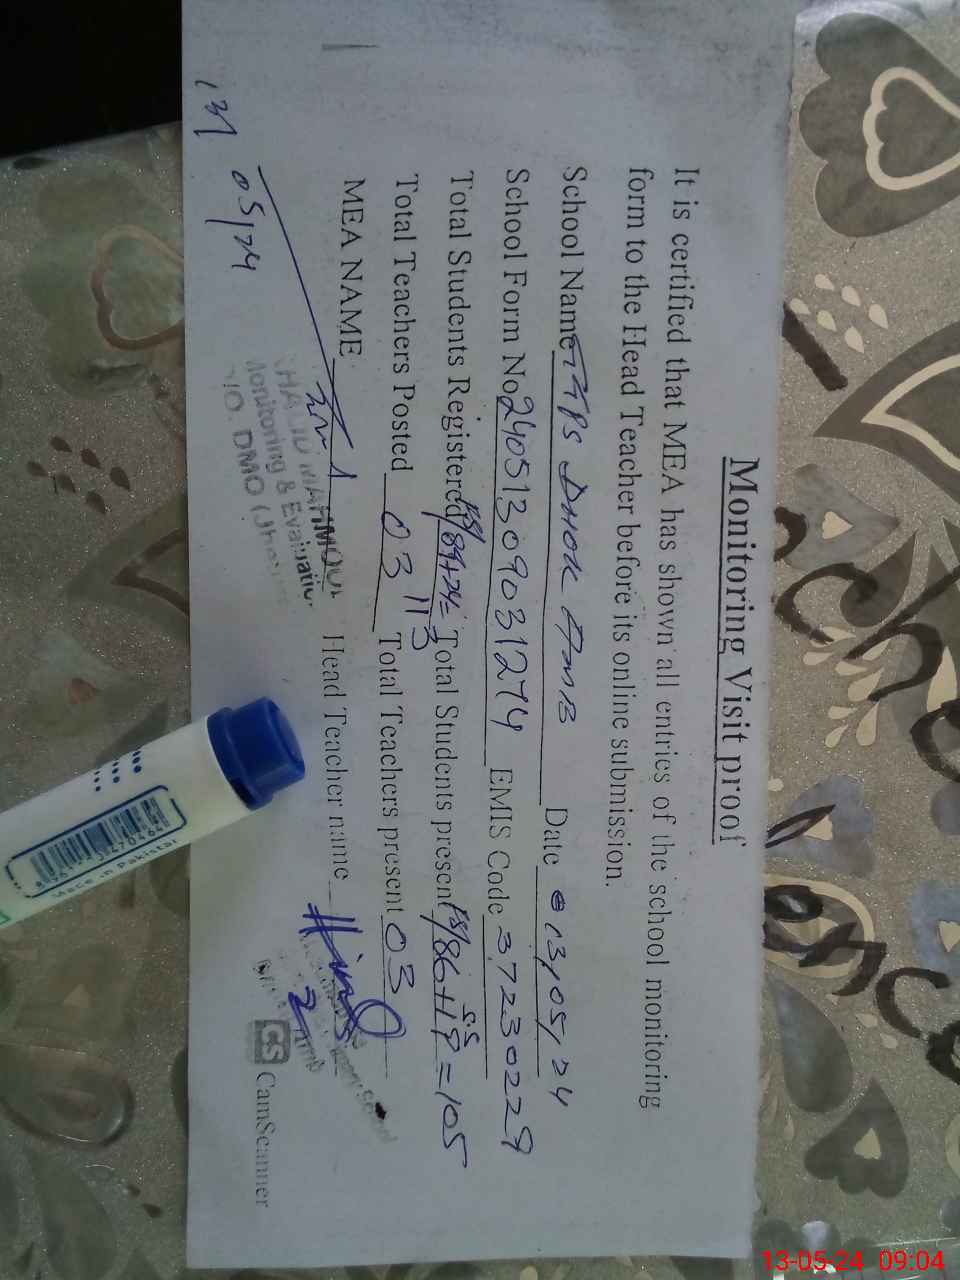 Monitoring Visit proof
It is certified that MEA has shown all entries of the school monitoring
form to the Head Teacher before its online submission.
School Name GGPS DHOK AMB Date 13/05/24
School Form No 240513090312274 EMIS Code 37230229
Total Students Registered PS/89+24=113 Total Students present PS/86+19=105
SS
Total Teachers Posted 03 Total Teachers present 03
MEA NAME Head Teacher name
13/05/24
KHALID MAHMOOD
Monitoring & Evaluation
O/O. DMO
CS CamScanner
Made in Pakistan
13-05-24 09:04